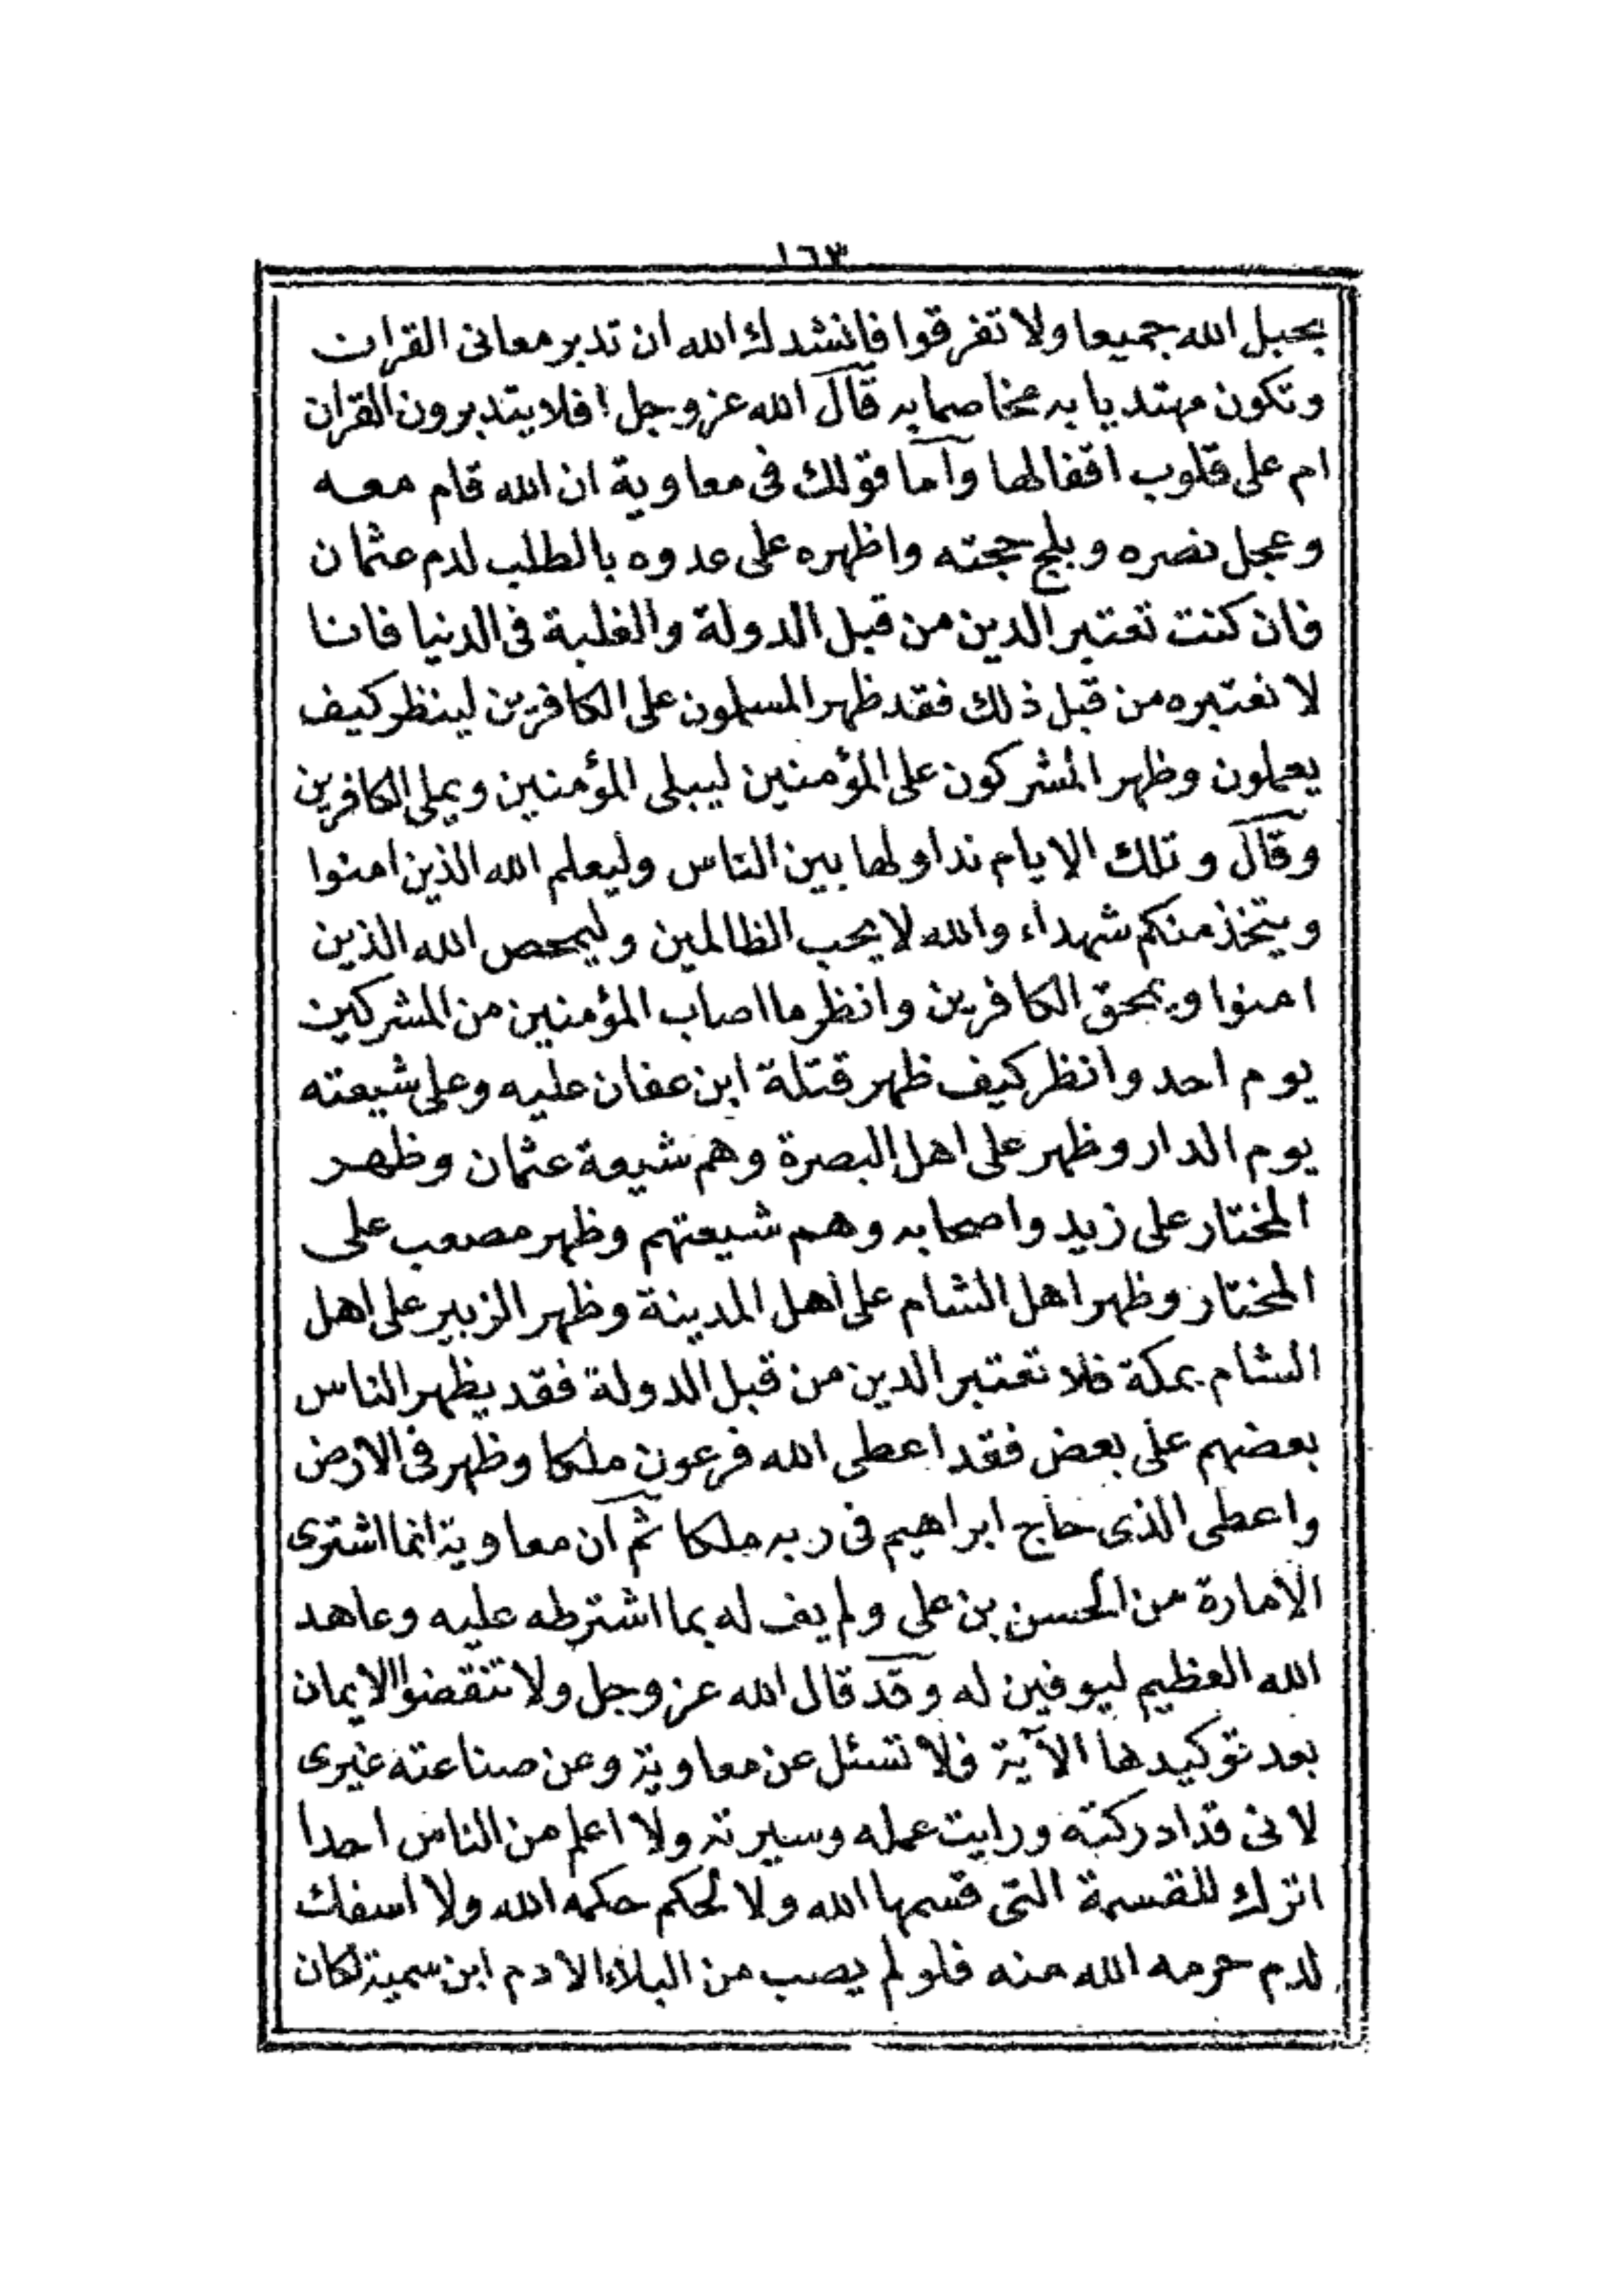 ١٦٣
بحبل الله جميعا ولا تفرقوا فانشدك الله ان تدبر معانى القران
وتكون مهتديا به مخاصما به قال الله عز وجل افلا يتدبرون القران
ام على قلوب اقفالها واما قولك فى معاوية ان الله قام معه
وعجل نصره وبلج حجته واظهره على عدوه بالطلب لدم عثمان
فان كنت تعتبر الدين من قبل الدولة والغلبة فى الدنيا فانا
لا نعتبره من قبل ذلك فقد ظهر المسلمون على الكافرين لينظر كيف
يعملون وظهر المشركون على المؤمنين ليبلى المؤمنين ويملى الكافرين
وقال وتلك الايام نداولها بين الناس وليعلم الله الذين امنوا
ويتخذ منكم شهداء والله لا يحب الظالمين وليمحص الله الذين
امنوا ويمحق الكافرين وانظر ما اصاب المؤمنين من المشركين
يوم احد وانظر كيف ظهر قتلة ابن عفان عليه وعلى شيعته
يوم الدار وظهر على اهل البصرة وهم شيعة عثمان وظهر
المختار على زيد واصحابه وهم شيعتهم وظهر مصعب على
المختار وظهر اهل الشام على اهل المدينة وظهر الزبير على اهل
الشام بمكة فلا تعتبر الدين من قبل الدولة فقد يظهر الناس
بعضهم على بعض فقد اعطى الله فرعون ملكا وظهر فى الارض
واعطى الذى حاج ابراهيم فى ربه ملكا ثم ان معاوية انما اشترى
الامارة من الحسن بن على ولم يف له بما اشترطه عليه وعاهد
الله العظيم ليوفين له وقد قال الله عز وجل ولا تنقضوا الايمان
بعد توكيدها الآية فلا تسئل عن معاوية وعن صناعته غيرى
لانى قد ادركته ورايت عمله وسيرته ولا اعلم من الناس احدا
اترك للقسمة التى قسمها الله ولا لحكم حكمه الله ولا اسفك
لدم حرمه الله منه فلو لم يصب من البلاء الا دم ابن سمية لكان